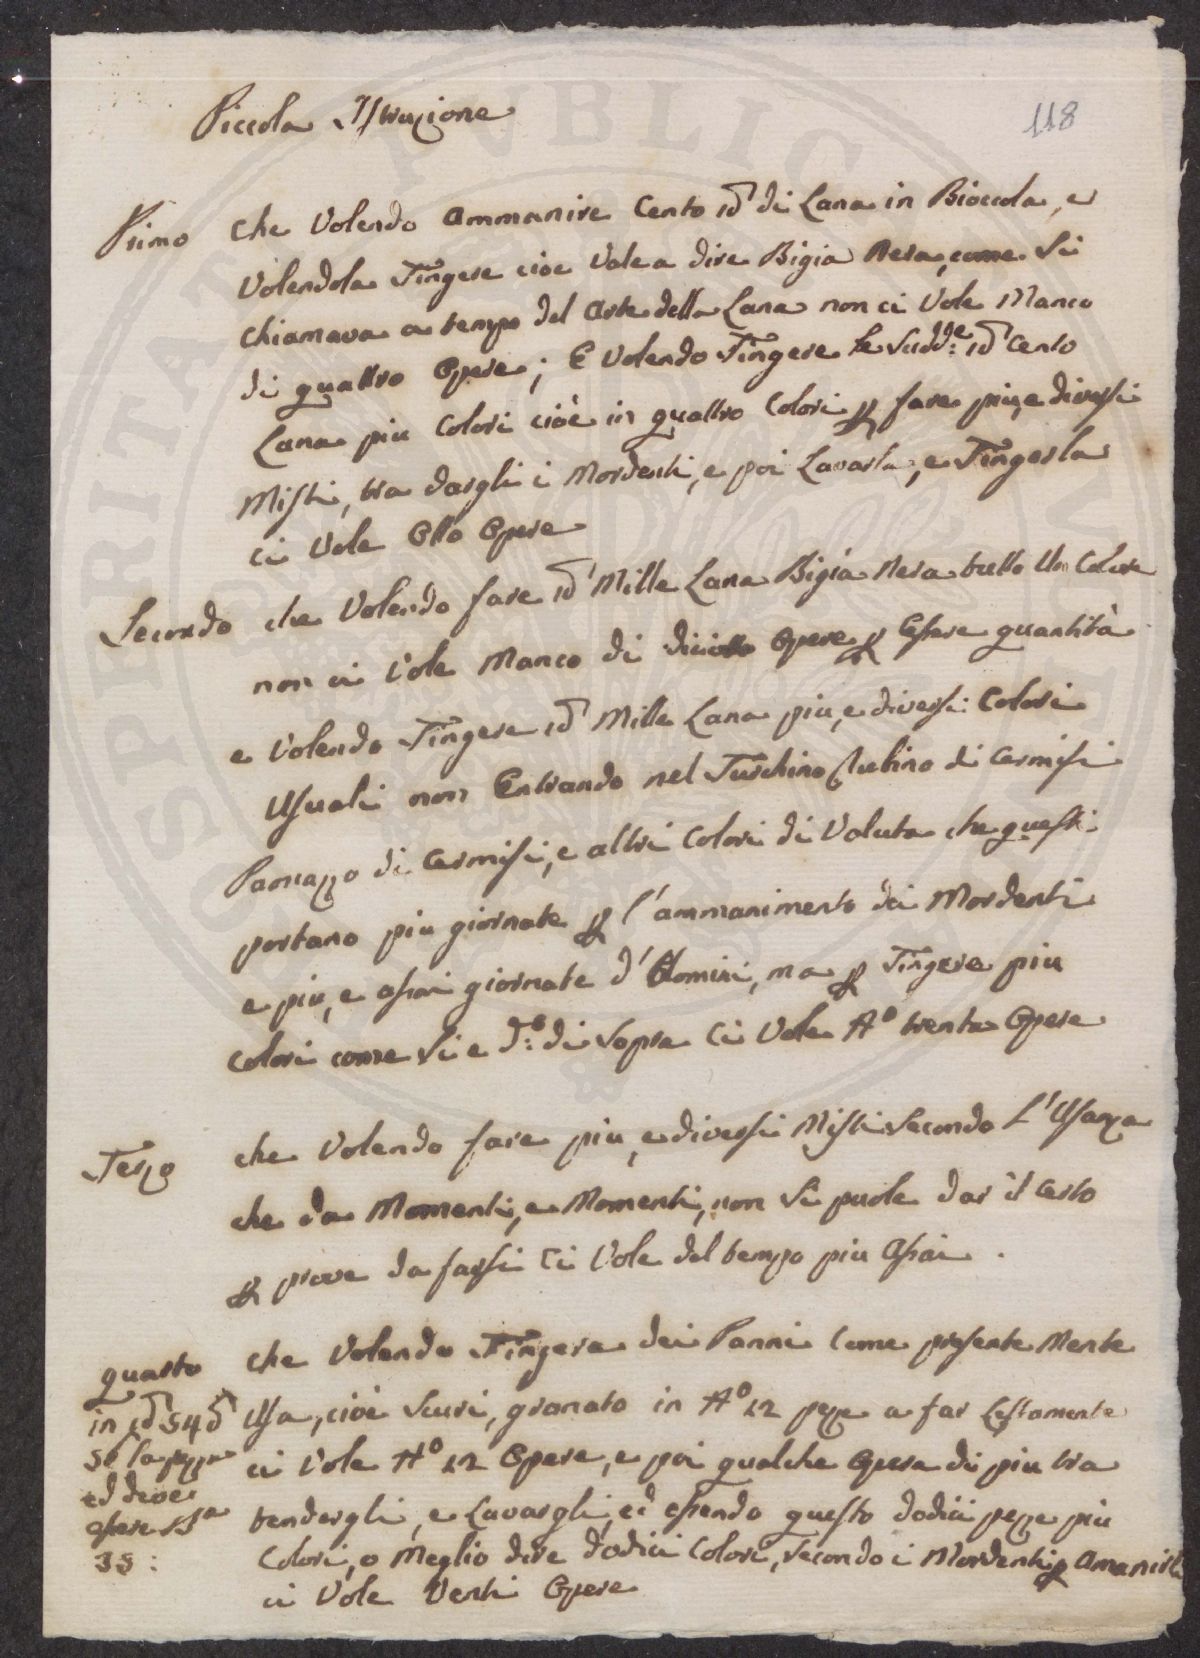 Piccola Istruzione
118
Primo che Volendo ammanire Cento lb di Lana in Bioccola, e
Volendola Tingere cioe Vale a dire Bigia Nera, come si
chiamava a tempo del Arte della Lana non ci Vole Manco
di quattro Opere; E Volendo Tingere le Sudd:e lb Cento
Lana piu Colori cioè in quattro Colori p fare piu, e diversi
Misti, tra dargli i Mordenti, e poi Lavarla, e Tingerla
ci Vole Otto Opere
Secondo che Volendo fare lb Mille Lana Bigia Nera tutto Un Colore
non ci Vole Manco di Opere p Essere quantità
e Volendo Tingere lb Mille Lana piu, e diversi Colori
Usuali non Entrando nel Turchino Rubino di Cermisi
Paonazzo di Cermisi, e altri Colori di Valuta che questi
portano piu giornate p l'ammanimento dei Mordenti
e piu, e assai giornate d'Uomini, ma p Tingere piu
Colori come si e d:o di sopra Ci Vole No trenta Opere
Terzo che Volendo fare piu, e diversi Misti secondo L'Usanza
che da Momenti, e Momenti, non Si puole dar il certo
p prove da farsi Ci Vole del tempo piu Assai.
quarto che Volendo Tingere dei Panni Come presente Mente
in lb 54 Usa, cioè Scuri, granato in No 12 pezze a far Lestamente
50 la pezza ci Vole No 12 Opere, e poi qualche Opera di piu tra
ed deve tendergli, e Lavargli, ed essendo questo dodici pezze piu
essere Colori, o Meglio dire dodici Colori, secondo i Mordenti p Amanirli
35: ci Vole Venti Opere